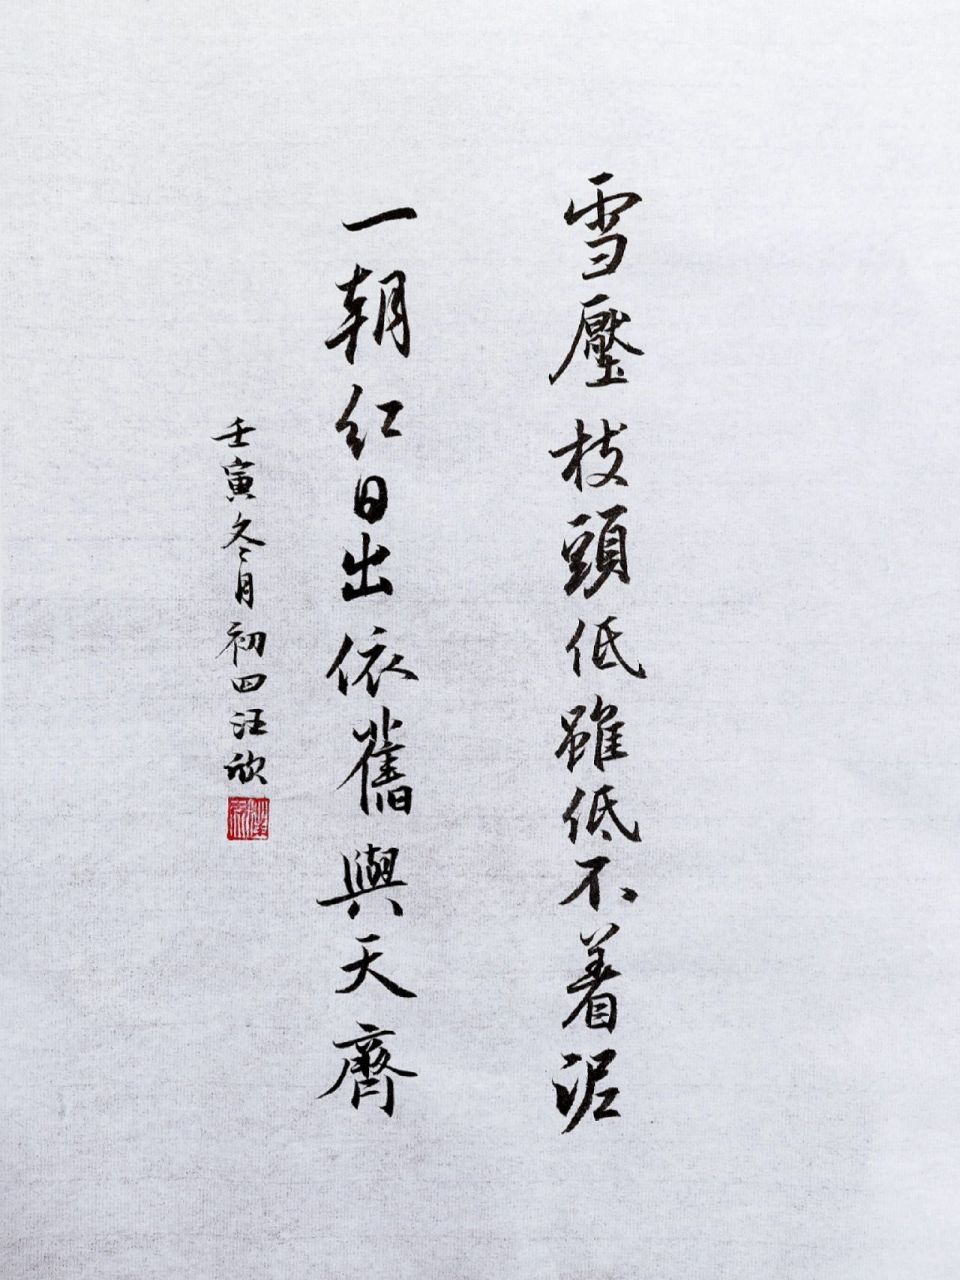 雪壓枝頭低雖低不着泥
一朝紅日出依舊與天齊
壬寅冬月初四汪欣